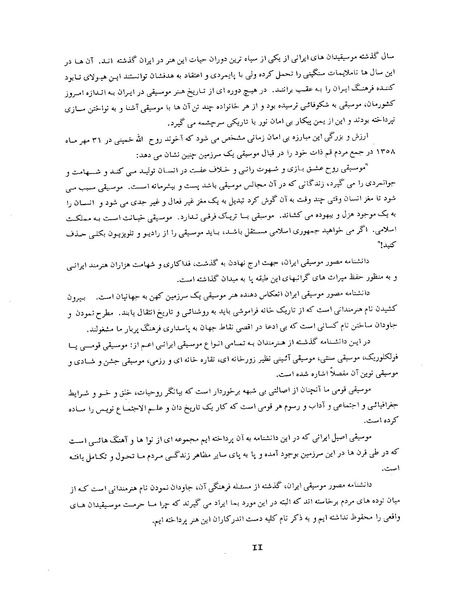 سال گذشته موسیقیدان های ایرانی از یکی از سیاه ترین دوران حیات این هنر در ایران گذشته اند. آن ها در
این سال ها ناملایمات سنگینی را تحمل کرده ولی با پایمردی و اعتقاد به هدفشان توانستند این هیولای نابود
کننده فرهنگ ایران را به عقب برانند. در هیچ دوره ای از تاریخ هنر موسیقی در ایران به اندازه امروز
کشورمان، موسیقی به شکوفائی نرسیده بود و از هر خانواده چند تن آن ها با موسیقی آشنا و به نواختن سازی
نپرداخته بودند و این از یمن پیکار بی امان نور با تاریکی سرچشمه می گیرد.
ارزش و بزرگی این مبارزه بی امان زمانی مشخص می شود که آخوند روح الله خمینی در ۳۱ مهر ماه
۱۳۵۸ در جمع مردم قم ذات خود را در قبال موسیقی یک سرزمین چنین نشان می دهد:
"موسیقی روح عشق بازی و شهوت رانی و خلاف عفت در انسان تولید می کند و شهامت و
جوانمردی را می گیرد، زندگانی که در آن مجالس موسیقی باشد پست و بیشرمانه است. موسیقی سبب می
شود تا مغز انسان وقتی چند وقت به آن گوش کرد تبدیل به یک مغز غیر فعال و غیر جدی می شود و انسان را
به یک موجود هزل و بیهوده می کشاند. موسیقی با تریاک فرقی ندارد. موسیقی خیانت است به مملکت
اسلامی. اگر می خواهید جمهوری اسلامی مستقل باشد، باید موسیقی را از رادیو و تلویزیون بکلی حذف
کنید!"
دانشنامه مصور موسیقی ایران، جهت ارج نهادن به گذشت، فداکاری و شهامت هزاران هنرمند ایرانی
و به منظور حفظ میراث های گرانبهای این طبقه پا به میدان گذاشته است.
دانشنامه مصور موسیقی ایران انعکاس دهنده هنر موسیقی یک سرزمین کهن به جهانیان است. بیرون
کشیدن نام هنرمندانی است که از تاریک خانه فراموشی باید به روشنائی و تاریخ انتقال یابند. مطرح نمودن و
جاودان ساختن نام کسانی است که بی ادعا در اقصی نقاط جهان به پاسداری فرهنگ پربار ما مشغولند.
در این دانشنامه گذشته از هنرمندان به تمامی انواع موسیقی ایرانی اعم از: موسیقی قومی یا
فولکلوریک، موسیقی سنتی، موسیقی آئینی نظیر زورخانه ای، نقاره خانه ای و رزمی، موسیقی جشن و شادی و
موسیقی نوین آن مفصلاً اشاره شده است.
موسیقی قومی ما آنچنان از اصالتی بی شبهه برخوردار است که بیانگر روحیات، خلق و خو و شرایط
جغرافیائی و اجتماعی و آداب و رسوم هر قومی است که کار یک تاریخ دان و علم الاجتماع نویس را ساده
کرده است.
موسیقی اصیل ایرانی که در این دانشنامه به آن پرداخته ایم مجموعه ای از نوا ها و آهنگ هائی است
که در طی قرن ها در این سرزمین بوجود آمده و پا به پای سایر مظاهر زندگی مردم ما تحول و تکامل یافته
است.
دانشنامه مصور موسیقی ایران، گذشته از مسئله فرهنگی آن، جاودان نمودن نام هنرمندانی است که از
میان توده های مردم برخاسته اند که البته در این مورد بما ایراد می گیرند که چرا ما حرمت موسیقیدان های
واقعی را محفوظ نداشته ایم و به ذکر نام کلیه دست اندرکاران این هنر پرداخته ایم.
II